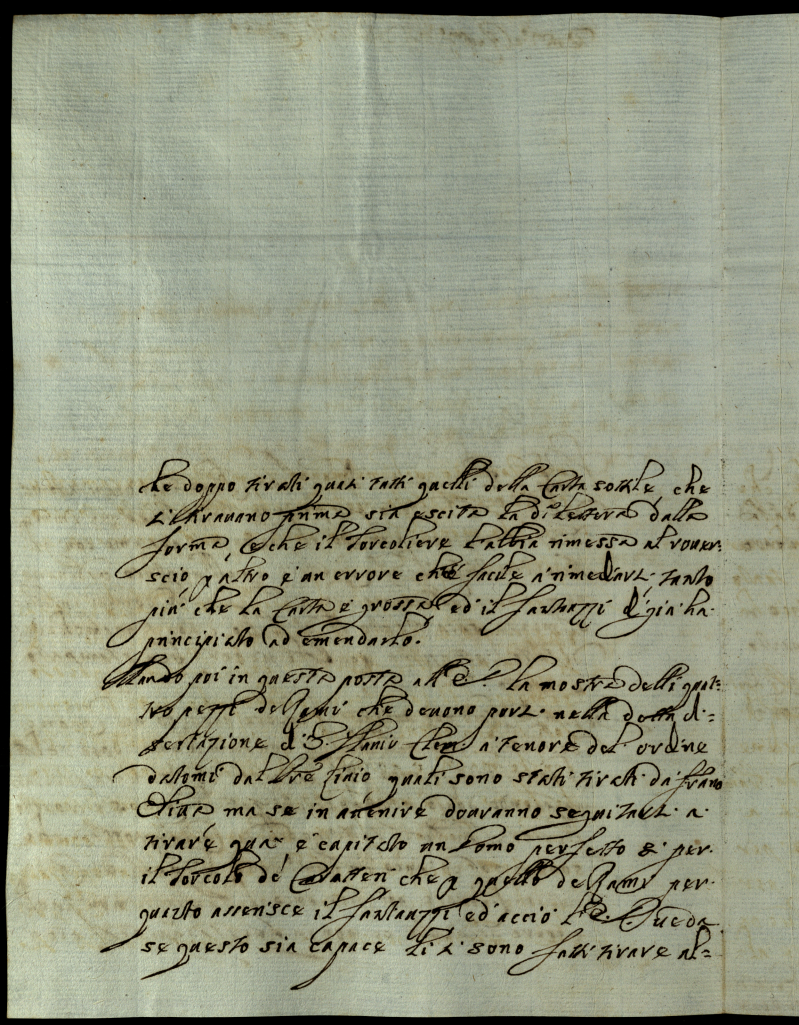 che doppo tirati quasi tutti quelli della Carta sottile, che
si tiravano prima sia escita la d.ᵃ lettera dalla
forma, e che il Torcoliere l'abbia rimessa al rover:
scio p altro è un errore che facile a rimediarsi tanto
più che la Carta è grossa ed il Fantauzzi di già ha
principiato ad emendarlo.
Mando poi in questa posta all' E. la mostra delli quat:
tro pezzi de Rami che devono porsi nella detta di=
sertazione di S. Clem a tenore del ordine
datomi dal Pre quali sono stati tirati da Frano
ma se in avenire dovranno seguitarsi a
tirare qua è capitato un Uomo perfetto sì per
il Torcolo de Caratteri che p quello de Rami per
quarto asserisce il Fantauzzi ed acciò l' E. veda
se questo sia capace li si sono fatti tirare al=